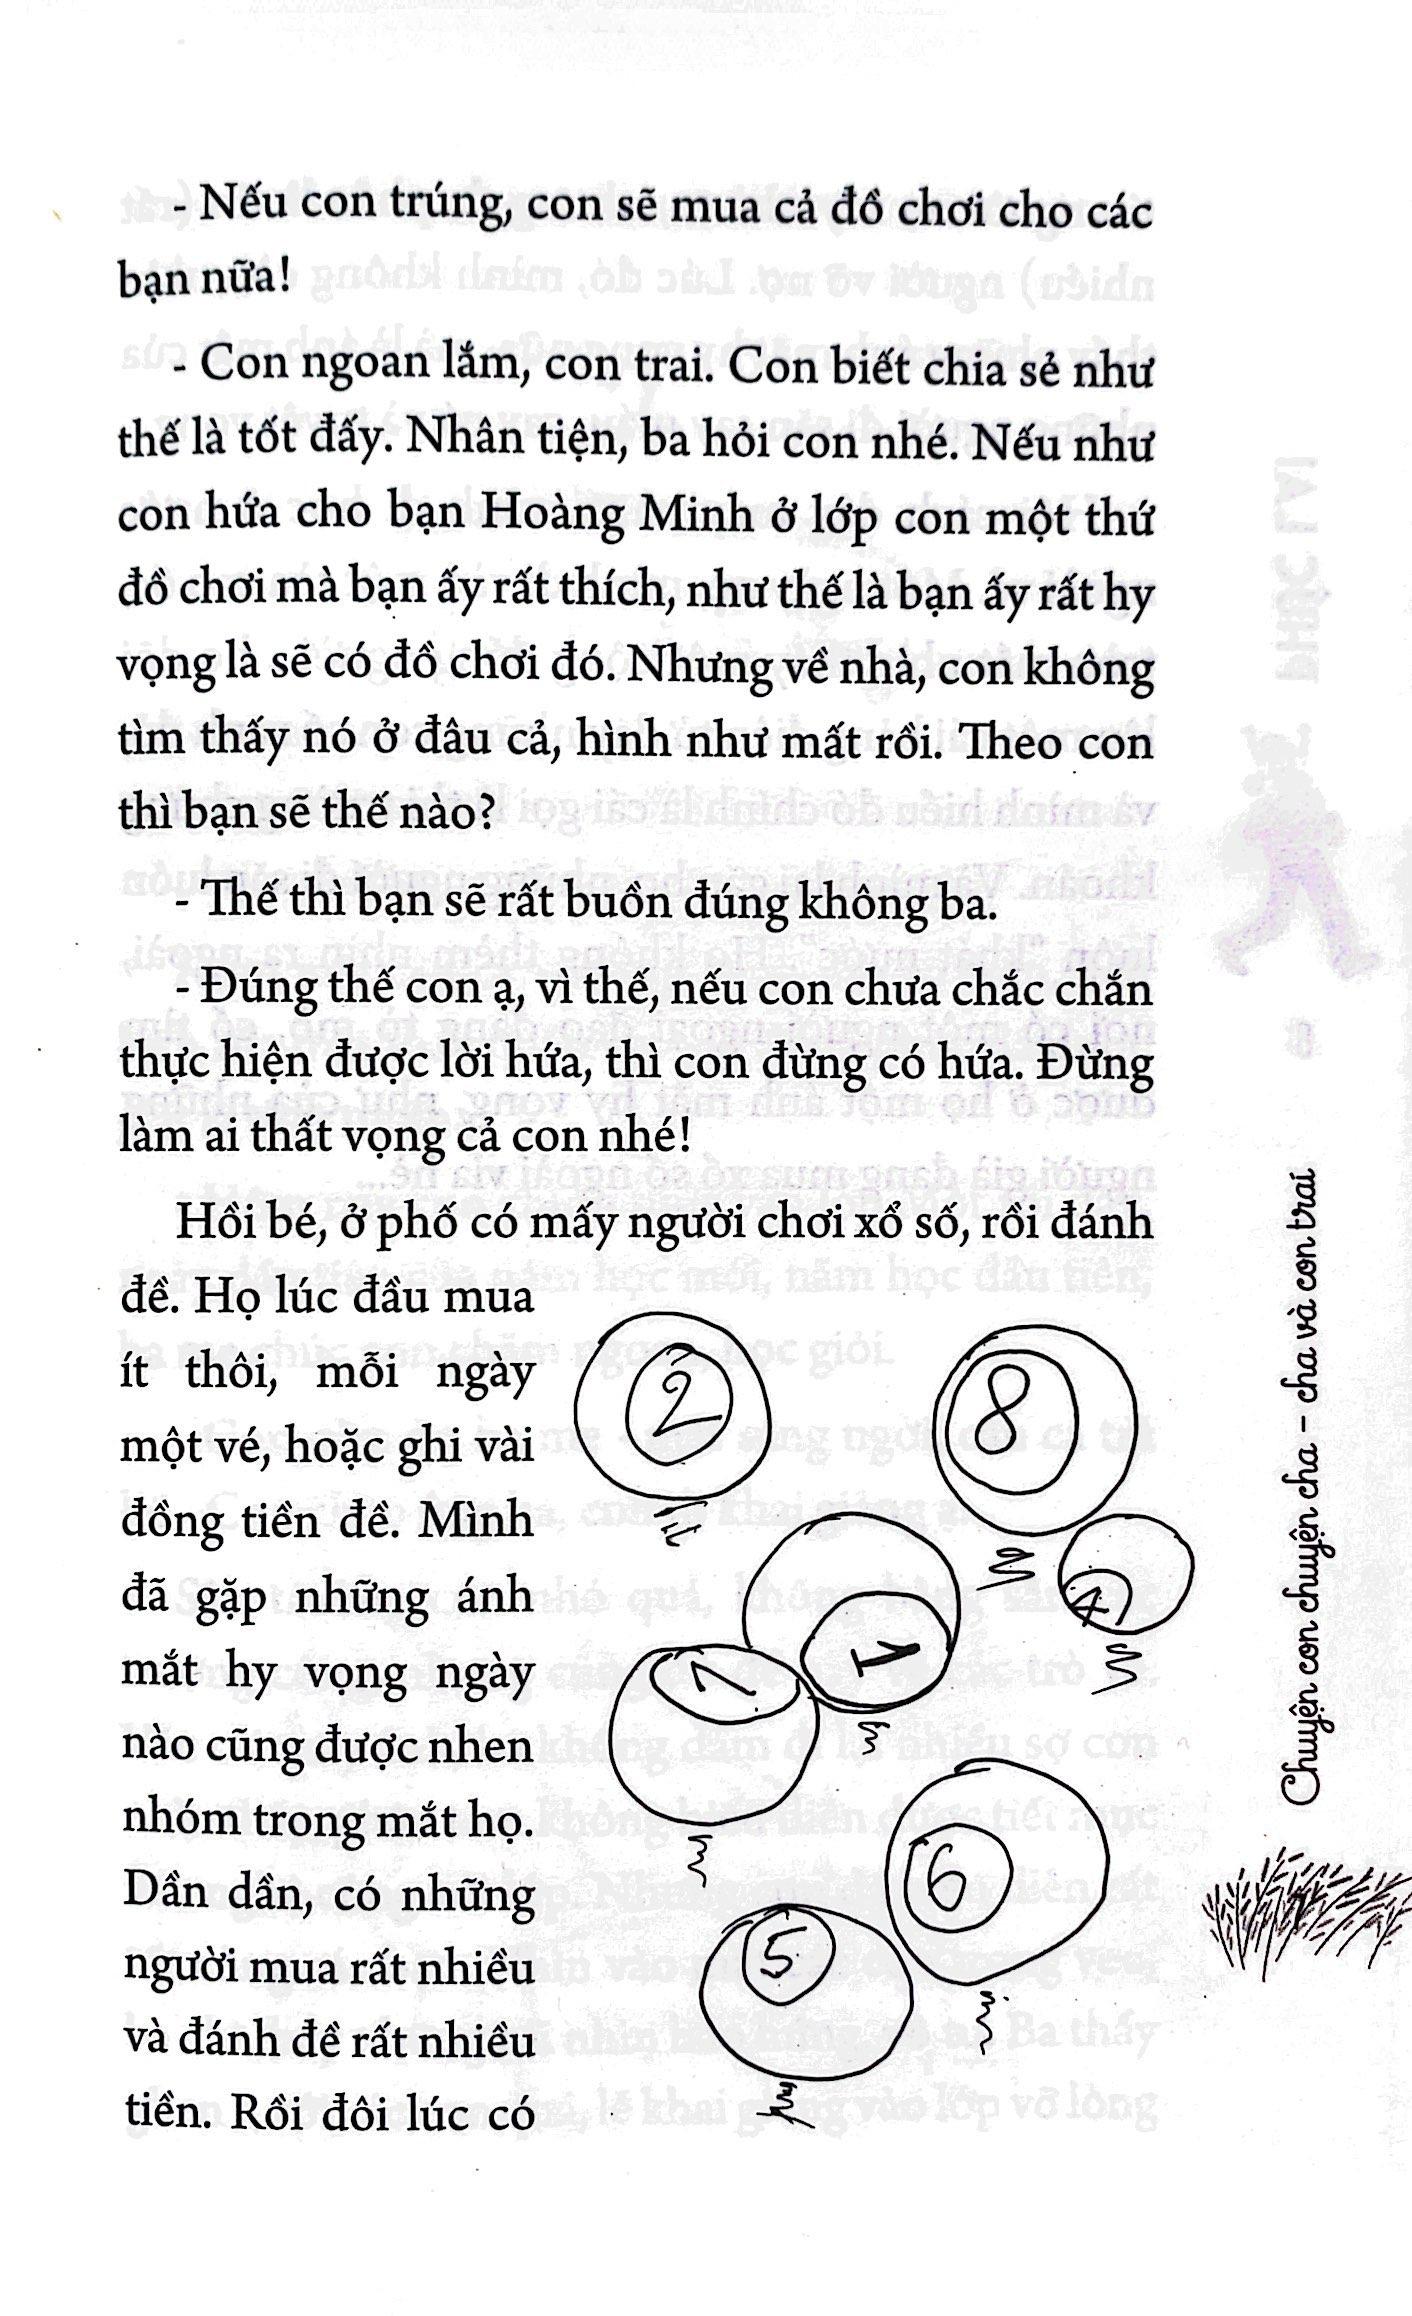 - Nếu con trúng, con sẽ mua cả đồ chơi cho các
bạn nữa!
- Con ngoan lắm, con trai. Con biết chia sẻ như
thế là tốt đấy. Nhân tiện, ba hỏi con nhé. Nếu như
con hứa cho bạn Hoàng Minh ở lớp con một thứ
đồ chơi mà bạn ấy rất thích, như thế là bạn ấy rất hy
vọng là sẽ có đồ chơi đó. Nhưng về nhà, con không
tìm thấy nó ở đâu cả, hình như mất rồi. Theo con
thì bạn sẽ thế nào?
- Thế thì bạn sẽ rất buồn đúng không ba.
- Đúng thế con ạ, vì thế, nếu con chưa chắc chắn
thực hiện được lời hứa, thì con đừng có hứa. Đừng
làm ai thất vọng cả con nhé!
Hồi bé, ở phố có mấy người chơi xổ số, rồi đánh
đề. Họ lúc đầu mua
ít thôi, mỗi ngày
một vé, hoặc ghi vài
đồng tiền đề. Mình
đã gặp những ánh
mắt hy vọng ngày
nào cũng được nhen
nhóm trong mắt họ.
Dần dần, có những
người mua rất nhiều
và đánh đề rất nhiều
tiền. Rồi đôi lúc có
2
8
4
1
1
6
5
Chuyện con chuyện cha – cha và con trai